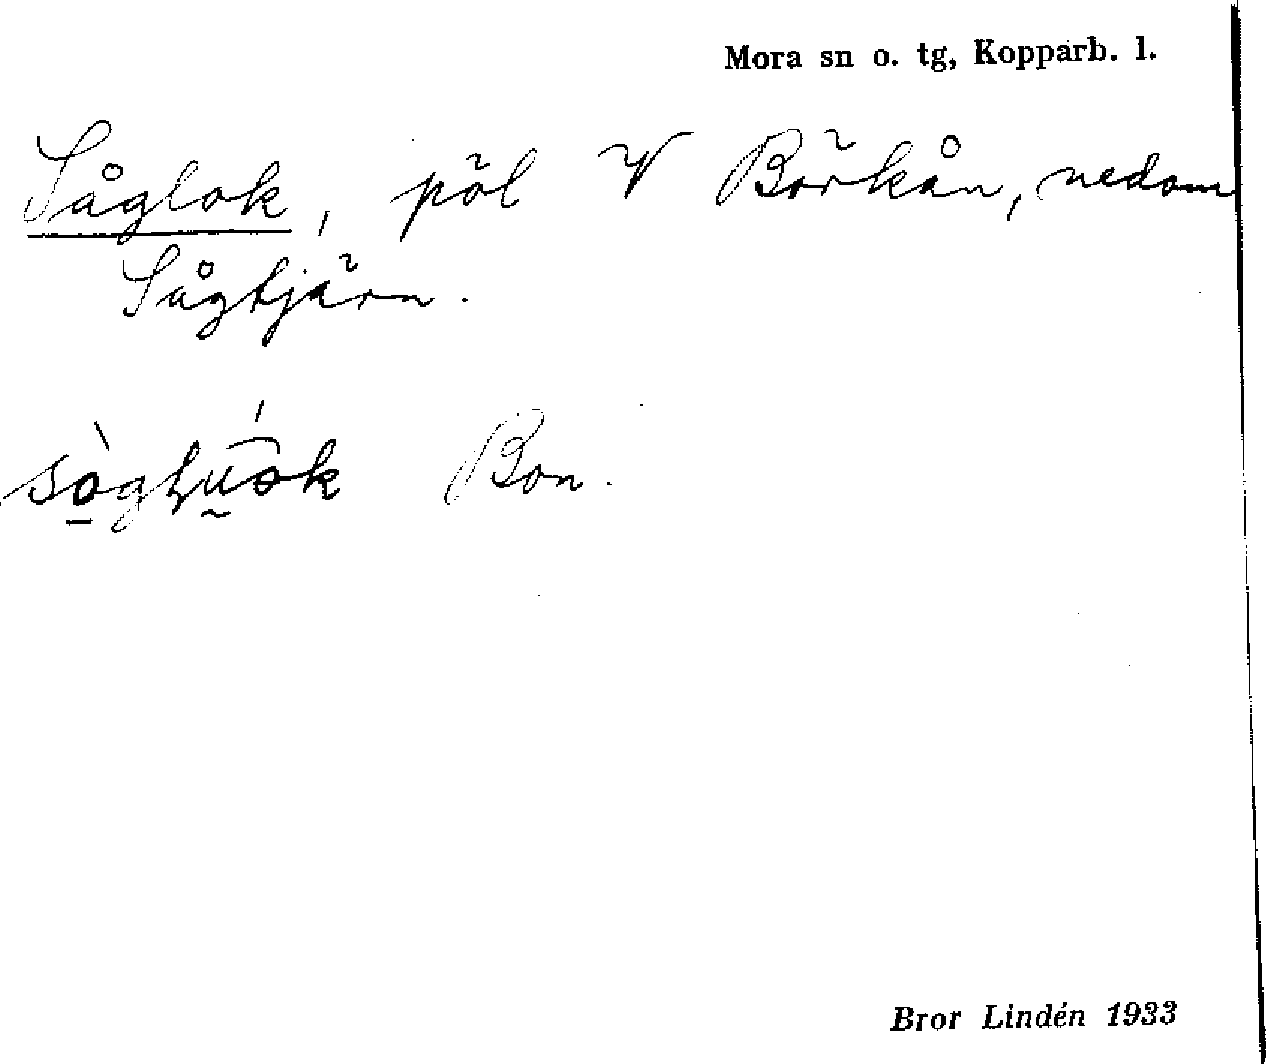 Mora sn o. tg, Kopparb. l.
Såglok, pöl V Börkån, nedom
Sågtjärn.
Bon.
Bror Lindén 1933